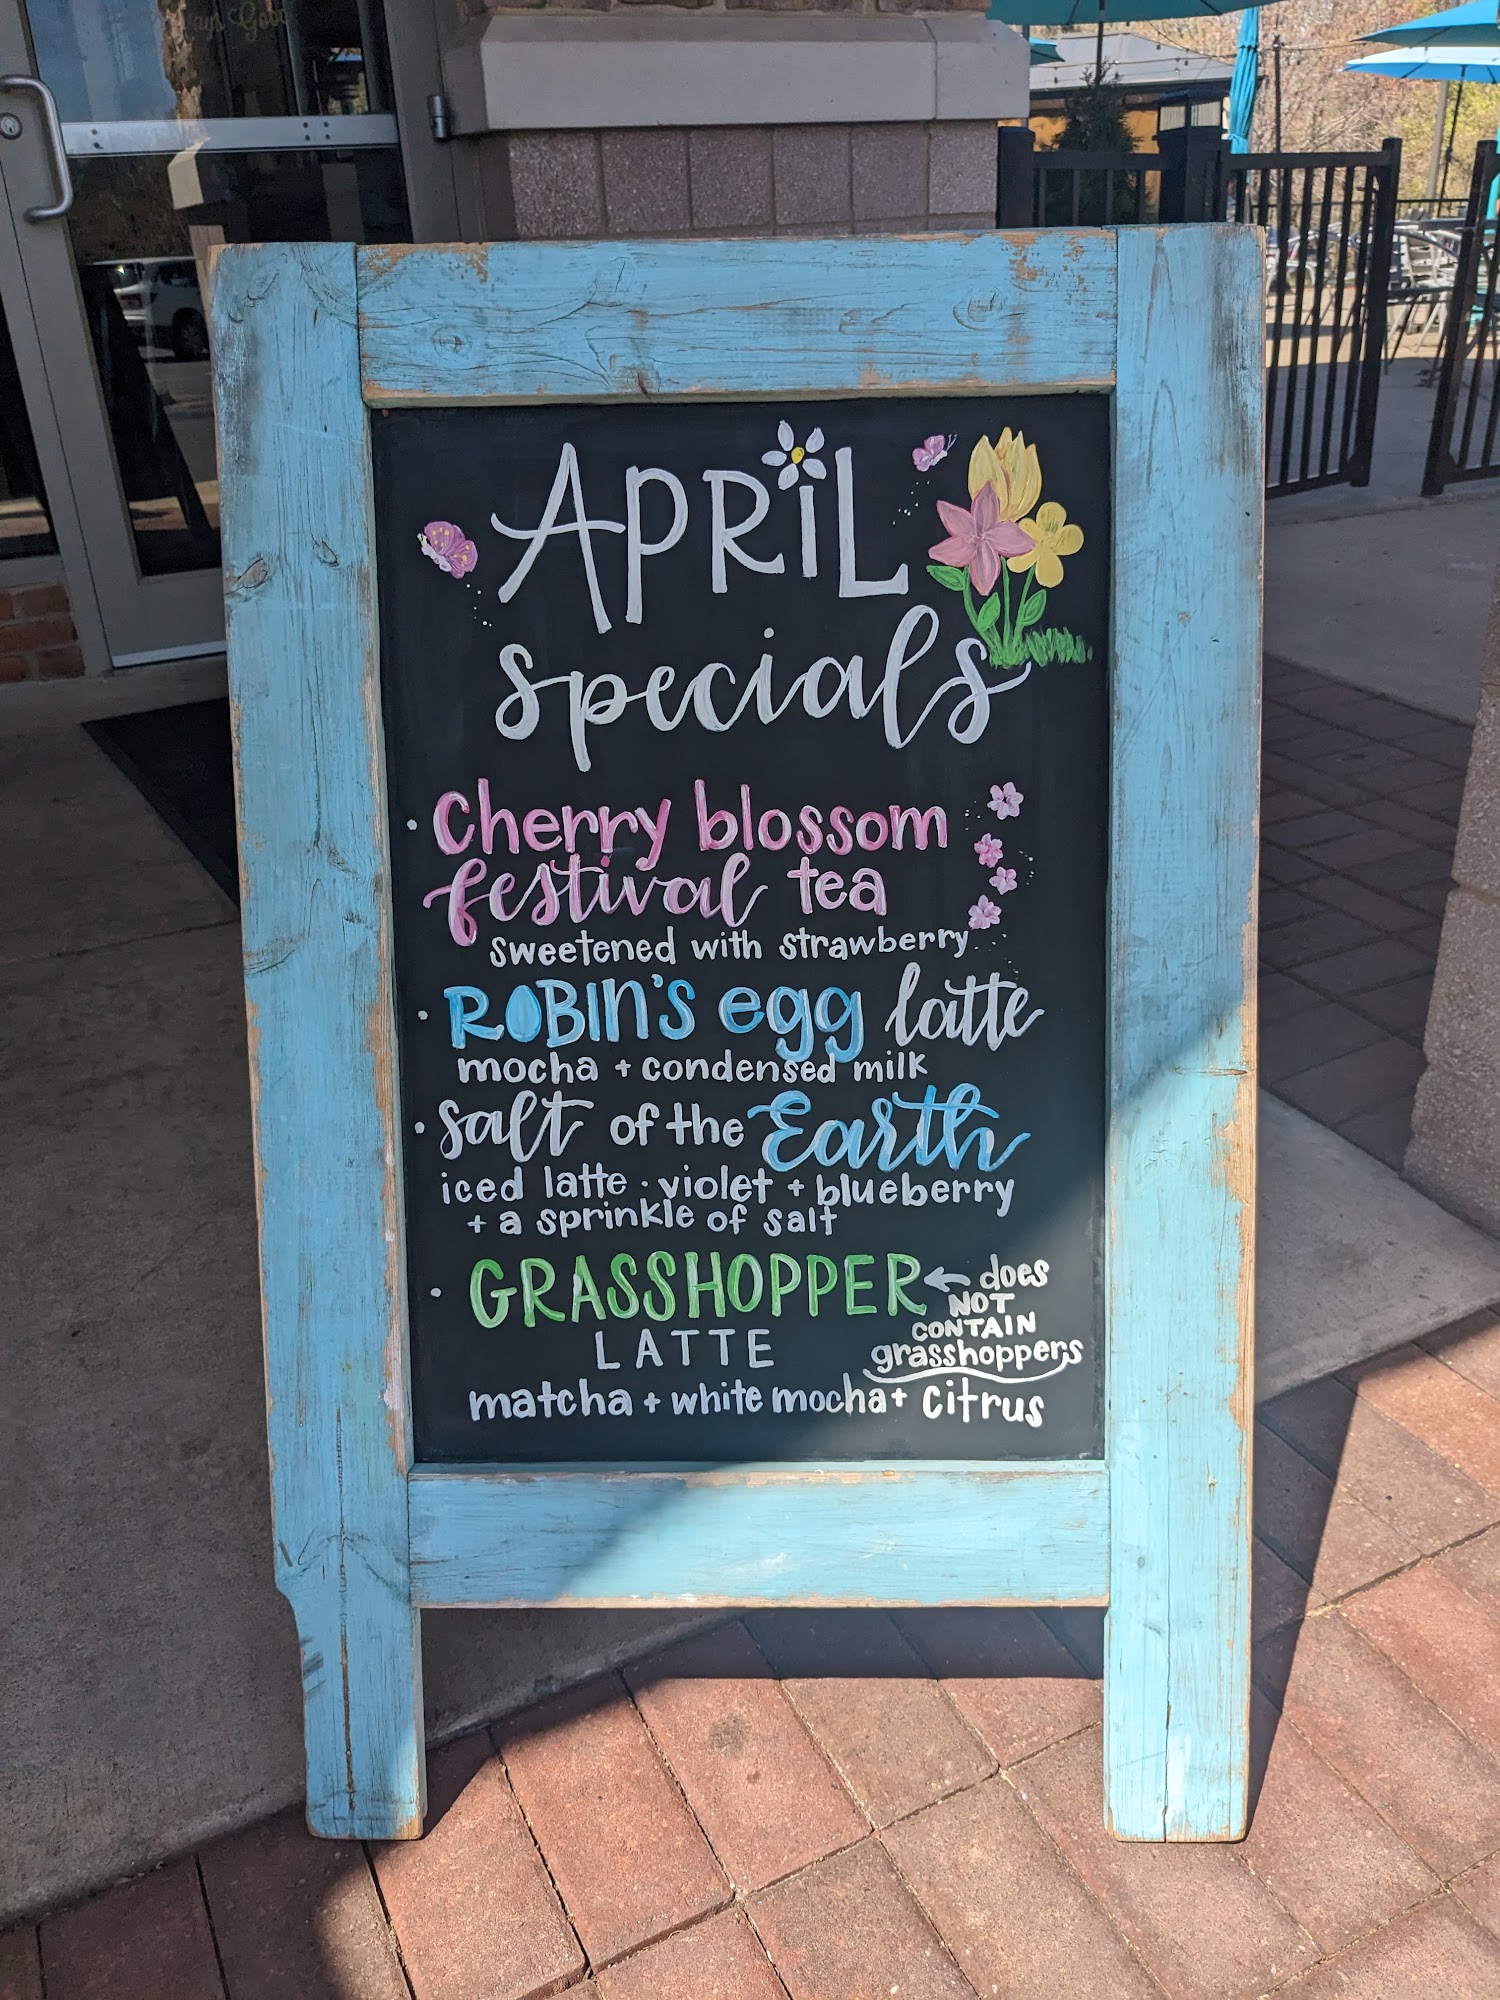 ays Good
APRiL
specials
· Cherry blossom
festival tea
sweetened with strawberry
· ROBIN'S egg latte
mocha + condensed milk
· Salt of the Earth
iced latte · violet + blueberry
+ a sprinkle of salt
· GRASSHOPPER ← does
NOT
CONTAIN
grasshoppers
LATTE
matcha + white mocha + citrus